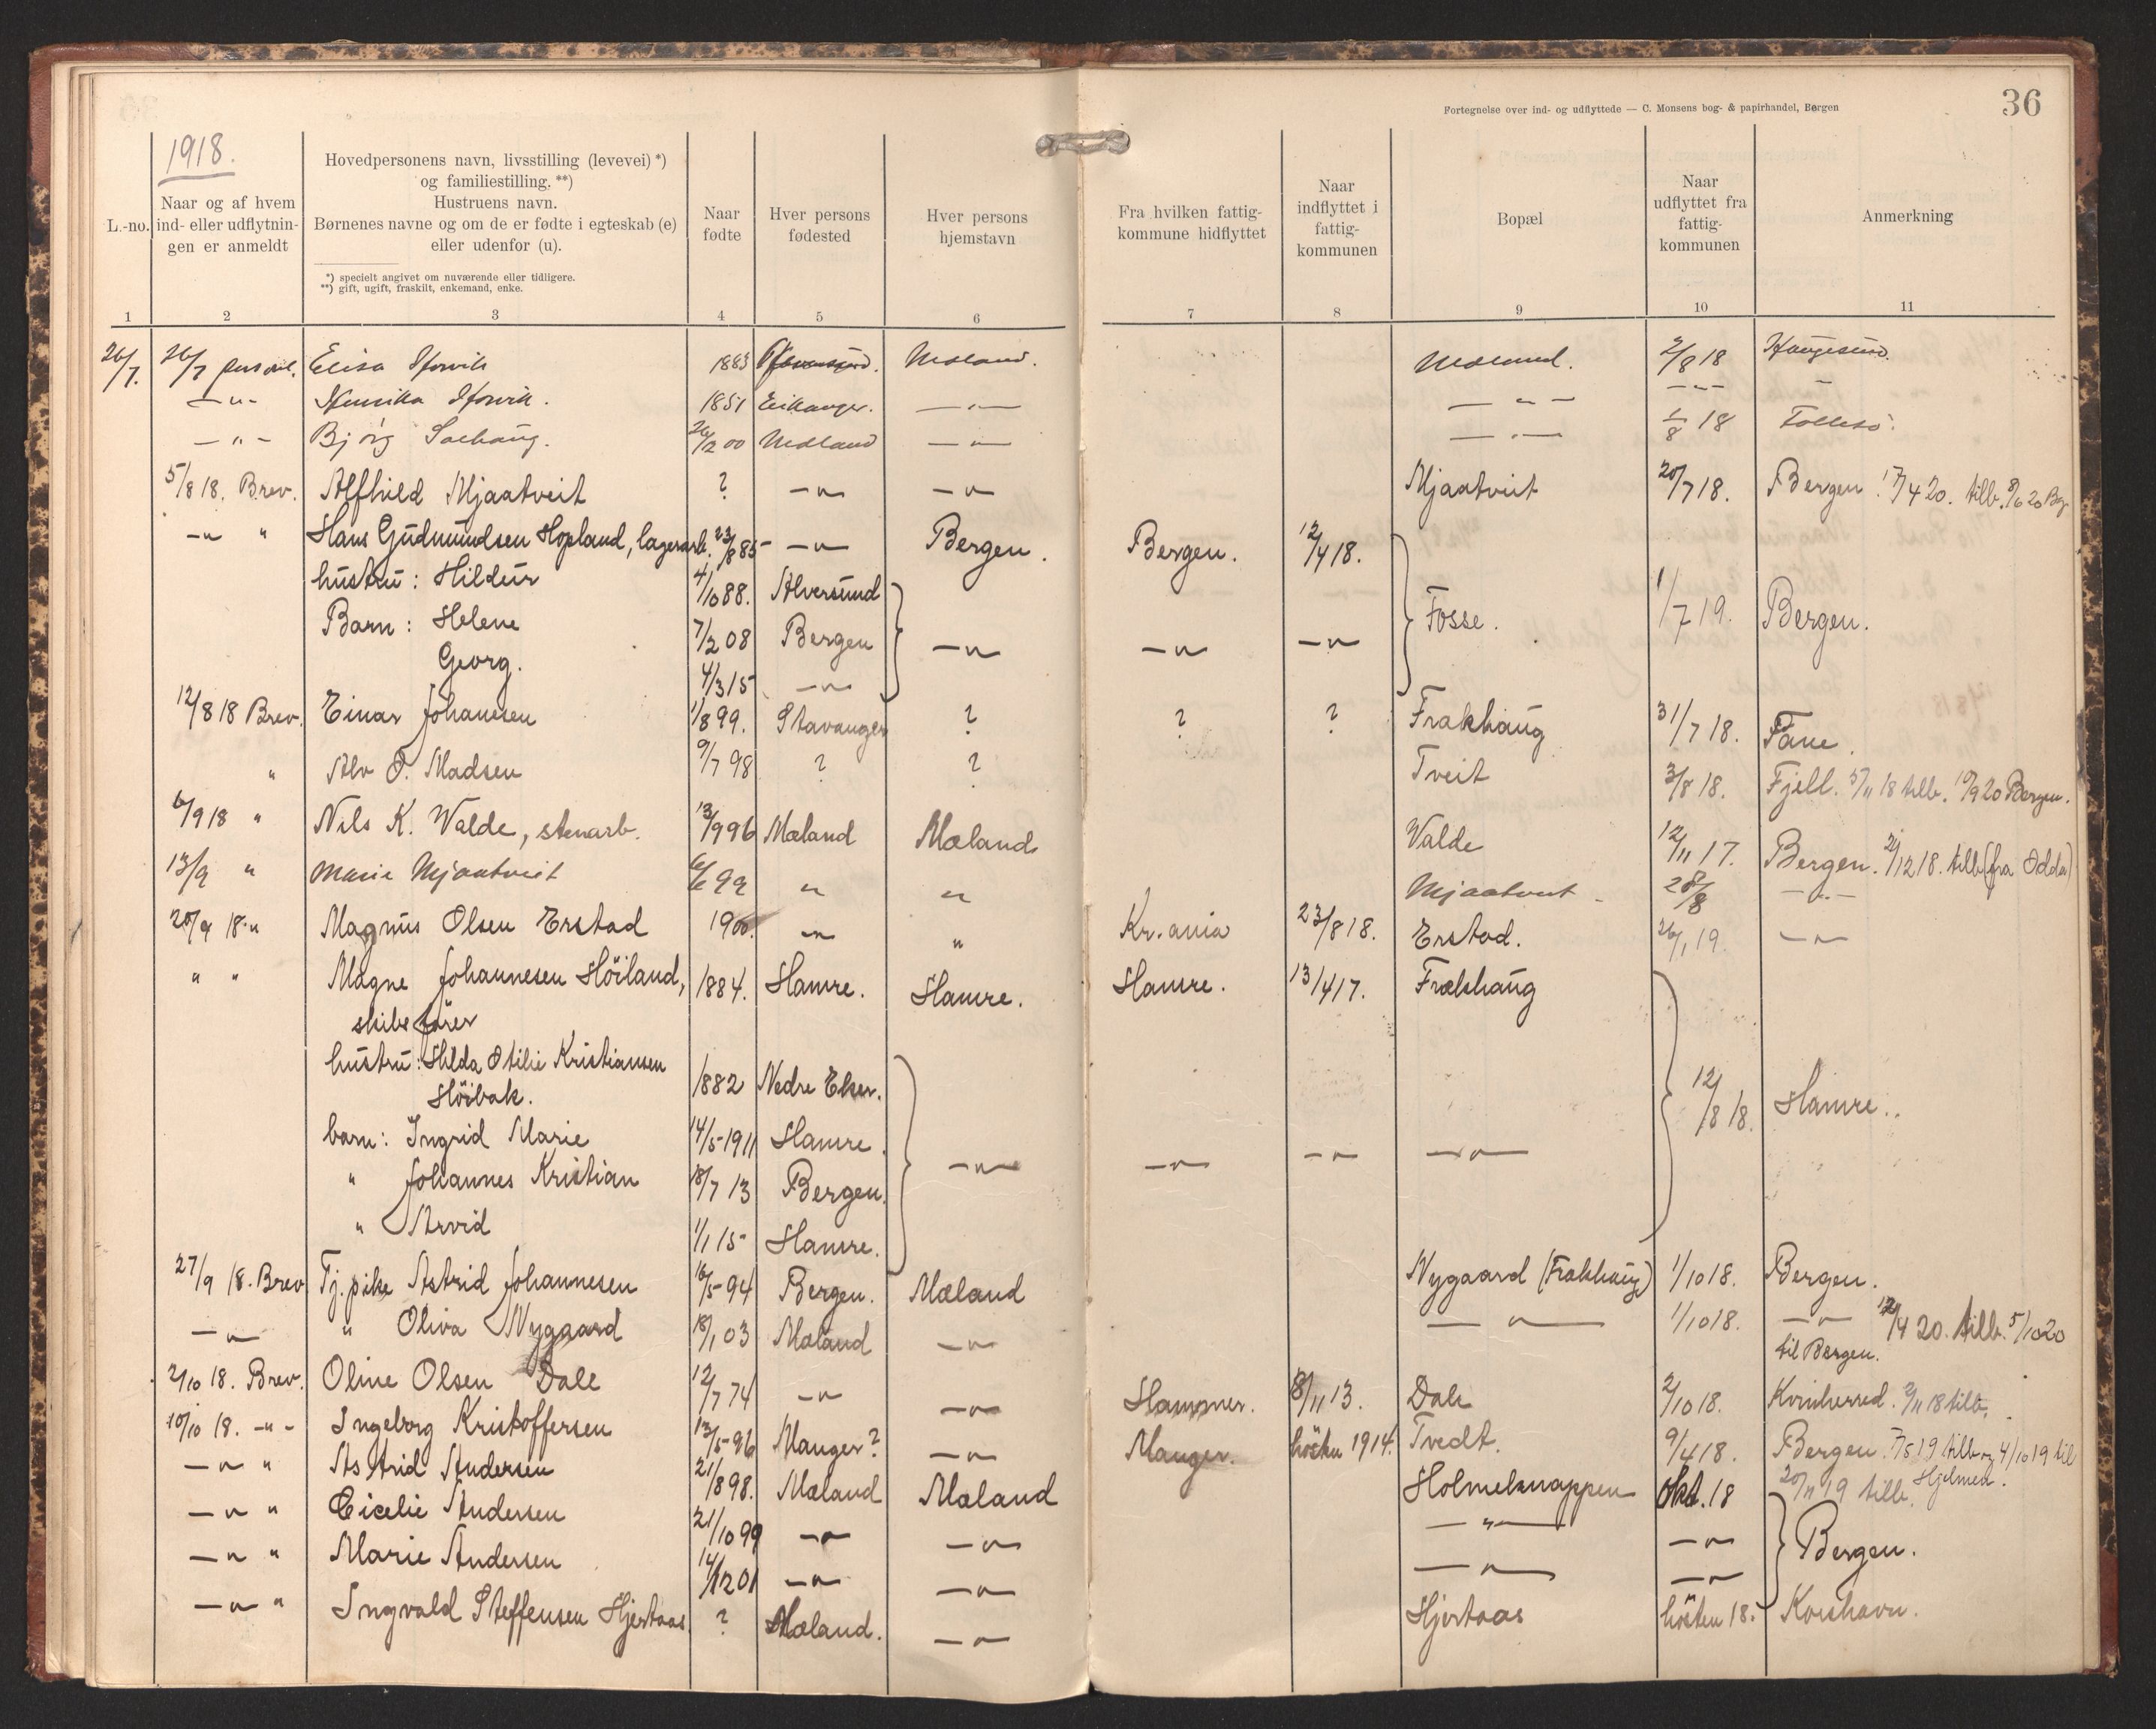 Fortegnelse over ind- og udflyttede — C. Monsens bog- & papirhandel, Bergen
36
1918.
L.-no.
Naar og af hvem ind- eller udflytnin- gen er anmeldt
Hovedpersonens navn, livsstilling (levevei) *)
og familiestilling. **)
Hustruens navn.
Børnenes navne og om de er fødte i egteskab (e)
eller udenfor (u).
*) specielt angivet om nuværende eller tidligere.
**) gift, ugift, fraskilt, enkemand, enke.
Naar fødte
Hver persons fødested
Hver persons hjemstavn
Fra hvilken fattig- kommune hidflyttet
Naar indflyttet i fattig- kommunen
Bopæl
Naar udflyttet fra fattig- kommunen
Anmerkning
1 2 3 4 5 6 7 8 9 10 11
26/7. 26/7 Elisa 1883 Mæland. Mæland. 2/8 18 Haugesund.
—"— 1851 Eikanger. —"— —"— —"—
—"— Bjørg 00 Mæland —"— —"— 1/8 18
5/8 18. Brev. Alfhild Mjaatveit ? —"— —"— Mjaatveit 20/7 18. Bergen. 17/4 20. tilb.
—"— " Hans Gudmundsen Hopland, lagerarb. 23/8 85 —"— Bergen. Bergen. 12/4 18.
hustru: Hildur 4/10 88. Alversund
Barn: Helene 7/2 08 Bergen —"— —"— —"— Fosse. 1/7 19. Bergen.
Georg. 4/3 15 —"—
12/8 18 Brev. Einar Johannesen 1/8 99. Stavanger ? ? ? Frakhaug 31/7 18. Fane.
" Alv O. Madsen 9/7 98 ? ? Tveit 3/8 18. Fjell. 5/11 18 tilb. 10/9 20 Bergen.
6/9 18 " Nils K. Valde, stenarb. 13/9 96 Mæland Mæland Valde 12/11 17. Bergen. 12 18. tilb (fra Odda)
13/9 " Marie Mjaatveit 6/6 99 " " Mjaatveit 28/8 —"—
20/9 18 " Magnus Olsen Erstad 1900. —"— " Kr.ania 23/8 18. Erstad. 26/1 19. —"—
" " Magne Johannesen Höiland, 1884. Hamre. Hamre. Hamre. 13/4 17. Frækhaug
skibsfører
hustru: Hilda Otilie Kristiansen
Höibak. 1882 Nedre Eker. 12/8 18. Hamre.
barn: Ingrid Marie 14/5 1911 Hamre. —"— —"— —"— —"—
" Johannes Kristian 18/7 13 Bergen.
" Arvid 1/1 15 Hamre.
27/9 18. Brev Tj.pike Astrid Johannesen 16/5 94 Bergen. Mæland Nygaard (Frakhaug) 1/10 18. Bergen.
—"— " Oliva Nygaard 18/1 03 Mæland —"— —"— 1/10 18. —"— 12/4 20. tilb. 5/10 20
til Bergen.
2/10 18. Brev. Oline Olsen Dale 12/7 74 —"— —"— Hammer. 8/11 13. Dale 2/10 18. Kvinherred. 2/11 18 tilb.
10/10 18. —"— Ingeborg Kristoffersen 13/5 96 Manger? —"— Manger. hösten 1914. Tvedt. 9/4 18. Bergen. 7/5 19 tilb. 4/10 19 til
Hjelmen.
—"— " Astrid Andersen 21/8 98. Mæland Mæland Holmeknappen Okt. 18 20/11 19 tilb.
—"— " Cicelie Andersen 21/10 99 —"— —"— —"— —"— Bergen.
—"— " Marie Andersen 01 —"— —"— —"— —"—
—"— " Ingvald Steffensen Hjertaas ? Mæland. —"— Hjertaas hösten 18. Korshavn.